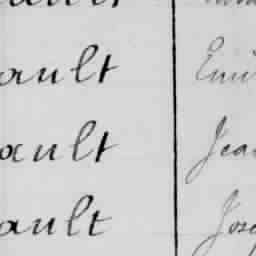 ault Emi
ault Jea
ault Jos